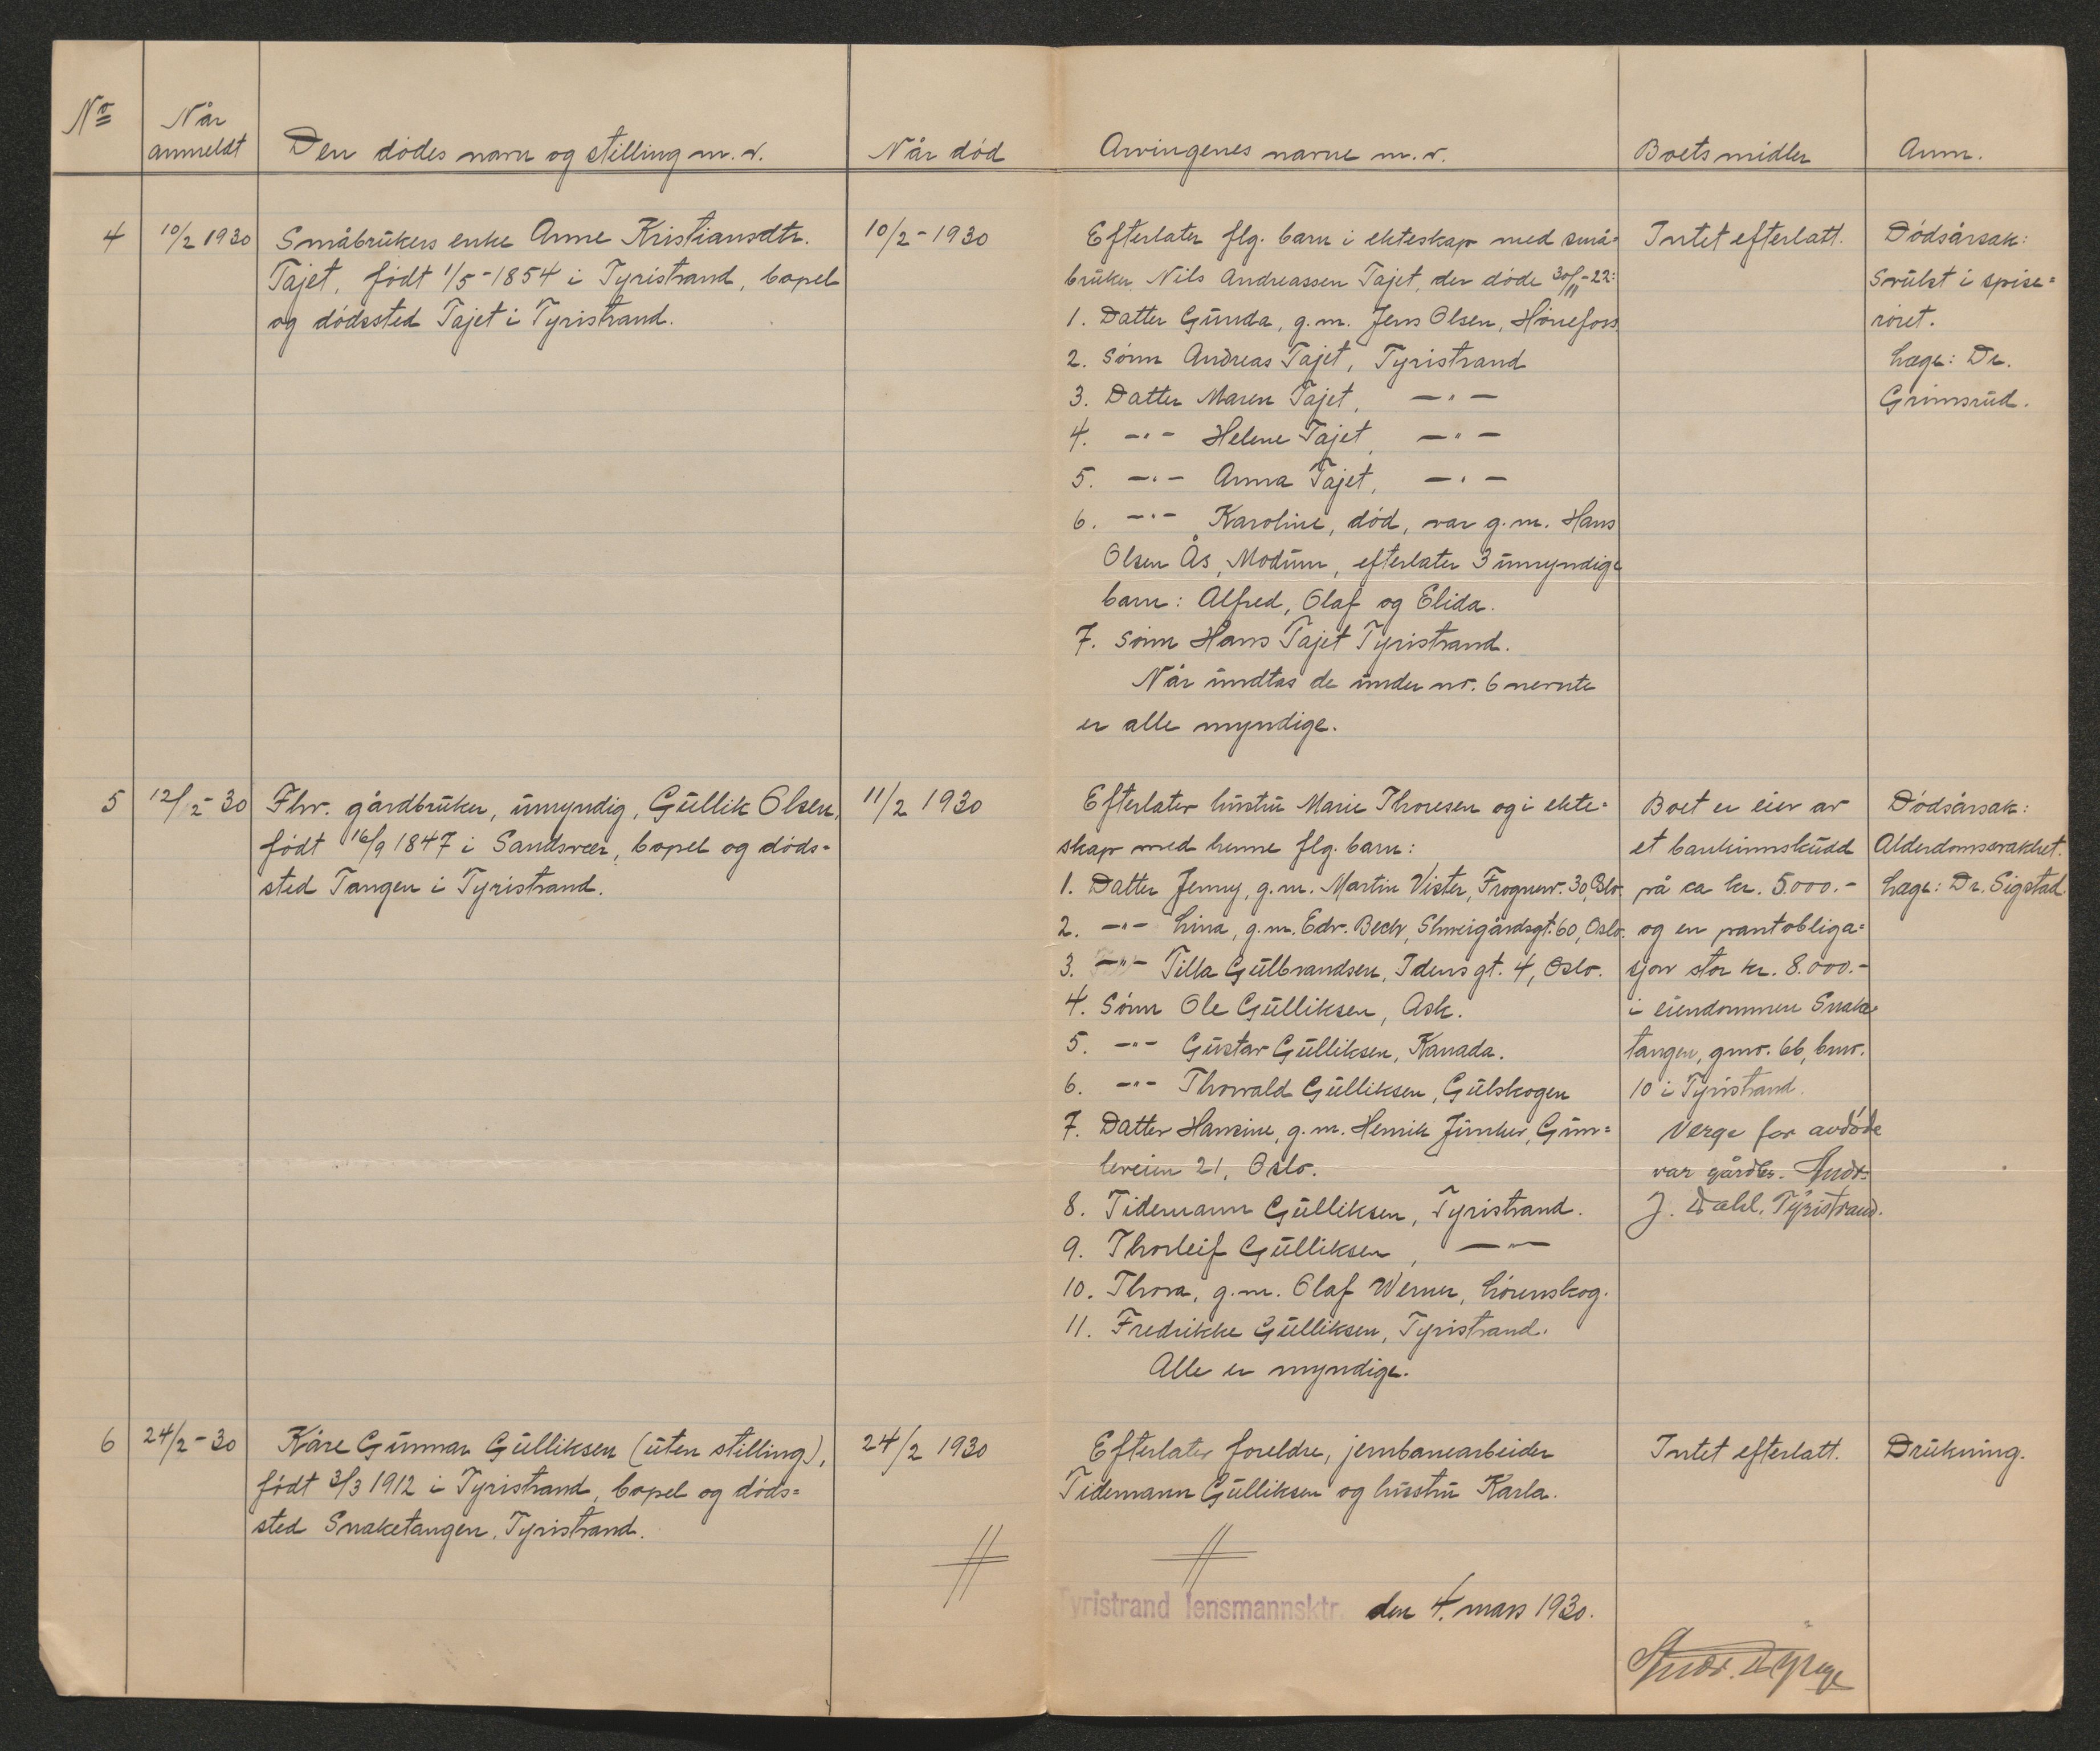 No
Når
anmeldt
Den dødes navn og stilling m.v.
Når død
Arvingenes navne m.v.
Boets midler
Anm.
4
10/2 1930
Småbrukers enke Anne Kristiansdtr.
Tajet, født 1/5-1854 i Tyristrand, bopel
og dødssted Tajet i Tyristrand.
10/2-1930
Efterlater flg. barn i ekteskap med små=
bruker Nils Andreassen Tajet, der døde 30/11-22:
1. Datter Gunda, g.m. Jens Olsen, Hønefoss
2. Sønn Andreas Tajet, Tyristrand
3. Datter Maren Tajet, —"—
4. —"— Helene Tajet, —"—
5. —"— Anna Tajet, —"—
6. —"— Karoline, død, var g.m. Hans
Olsen Ås, Modum, efterlater 3 umyndige
barn: Alfred, Olaf og Elida.
7. Sønn Hans Tajet Tyristrand.
Når undtas de under nr. 6 nevnte
er alle myndige.
Intet efterlatt.
Dødsårsak:
Svulst i spise=
røret.
Læge: Dr.
Grimsrud.
5
12/2-30
Fhv. gårdbruker, umyndig, Gullik Olsen,
født 16/9 1847 i Sandsvær, bopel og døds=
sted Tangen i Tyristrand.
11/2 1930
Efterlater hustru Marie Thoresen og i ekte=
skap med henne flg. barn:
1. Datter Jenny, g.m. Martin Vister, Frognerv. 30, Oslo.
2. —"— Lina, g.m. Edv. Bech, Shweigårdsgt. 60, Oslo.
3. —"— Tilla Gulbrandsen, Idunsgt. 4, Oslo.
4. Sønn Ole Gulliksen, Ask.
5. —"— Gustav Gulliksen, Kanada.
6. —"— Thorvald Gulliksen, Gulskogen
7. Datter Hansine, g.m. Henrik Junker, Gim=
leveien 21, Oslo.
8. Tidemann Gulliksen, Tyristrand.
9. Thorleif Gulliksen, —"—
10. Thora, g.m. Olaf Werner, Lørenskog.
11. Fredrikke Gulliksen, Tyristrand.
Alle er myndige.
Boet er eier av
et bankinnskudd
på ca kr. 5.000.-
og en pantobliga=
sjon stor kr. 8.000.-
i eiendommen Snake=
tangen, gnr. 66, bnr.
10 i Tyristrand.
Verge for avdøde
var gårdbr. Andr.
J. Dahl, Tyristrand.
Dødsårsak:
Alderdomssvakhet.
Læge: Dr. Sigstad.
6
24/2-30
Kåre Gunnar Gulliksen (uten stilling),
født 3/3 1912 i Tyristrand, bopel og døds=
sted Snaketangen, Tyristrand.
24/2 1930
Efterlater foreldre, jernbanearbeider
Tidemann Gulliksen og hustru Karla.
Intet efterlatt.
Drukning.
Tyristrand lensmannsktr. den 4. mars 1930.